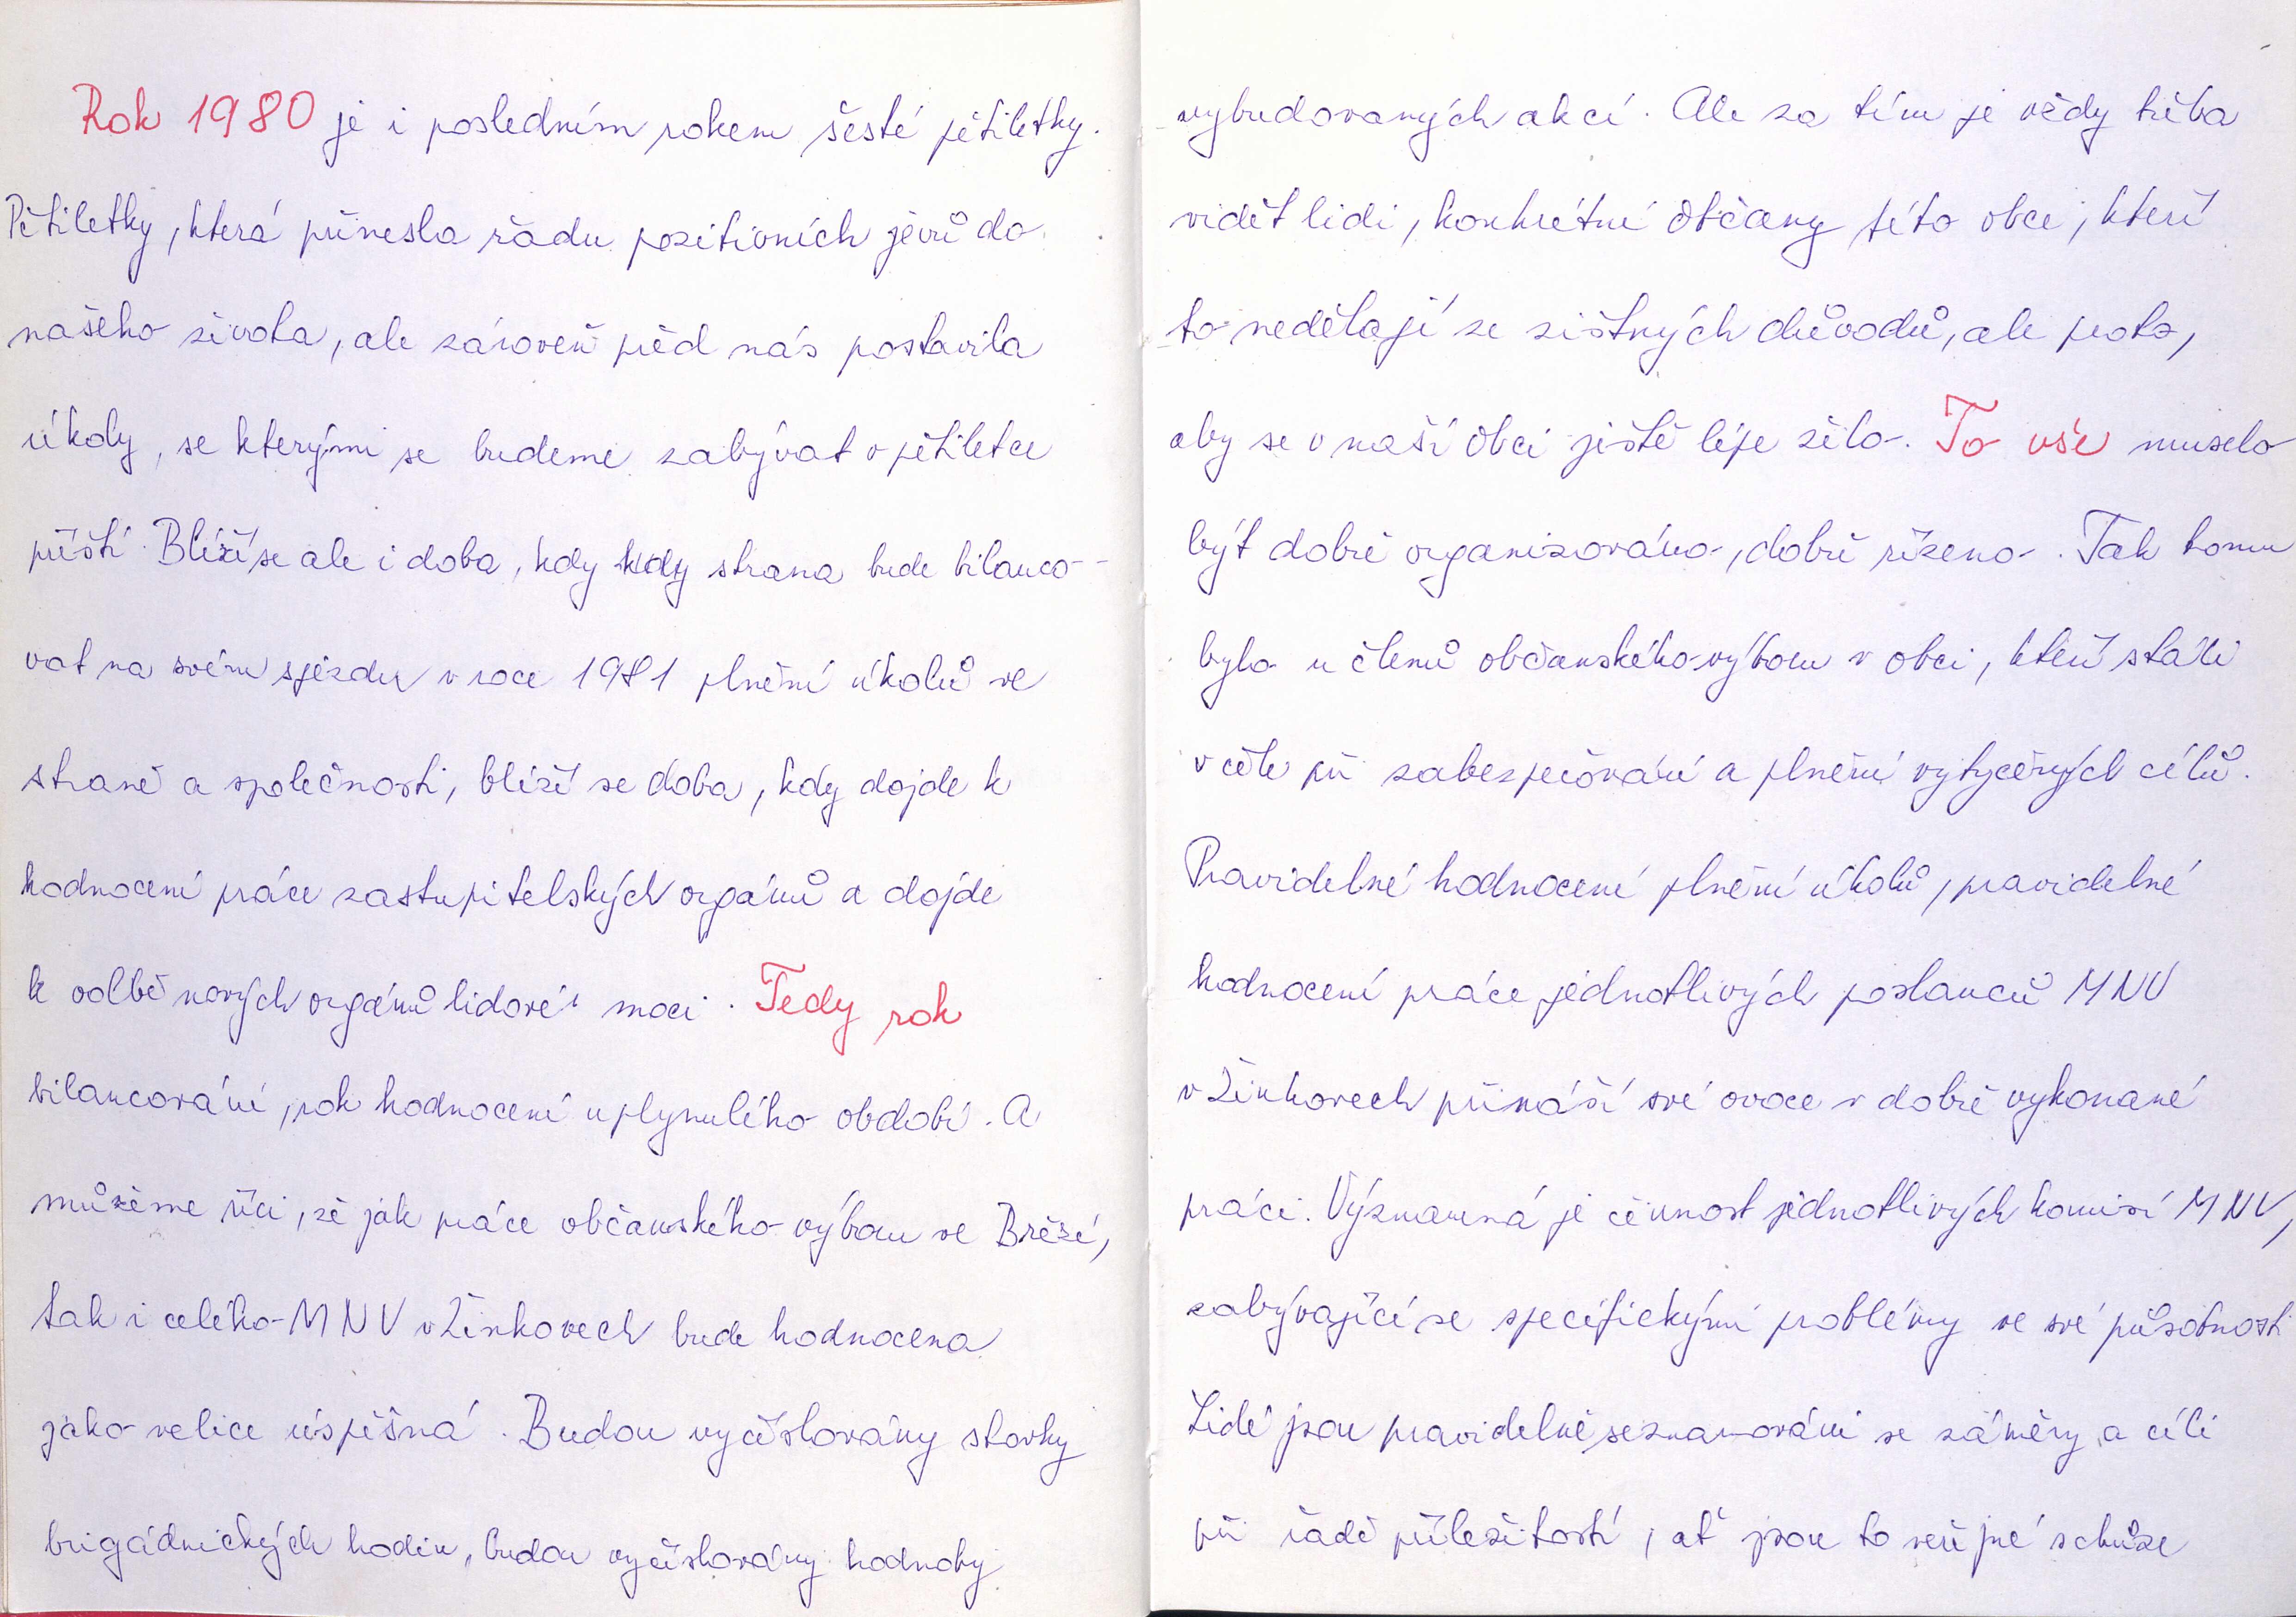 Rok 1980 je i posledním rokem šesté pětiletky.
Pětiletky, která přinesla řadu pozitivních jevů do
našeho života, ale zároveň před nás postavila
úkoly, se kterými se budeme zabývat v pětiletce
příští. Blíží se ale i doba, kdy kdy strana bude bilanco-
vat na svém sjezdu v roce 1981 plnění úkolů ve
straně a společnosti, blíží se doba, kdy dojde k
hodnocení práce zastupitelských orgánů a dojde
k volbě nových orgánů lidové moci. Tedy rok
bilancování, rok hodnocení uplynulého období. A
můžeme říci, že jak práce občanského výboru ve Březí,
tak i celého MNV v Žinkovech bude hodnocena
jako velice úspěšná. Budou vyčíslovány stovky
brigádnických hodin, budou vyčíslovány hodnoty
vybudovaných akcí. Ale za tím je vždy třeba
vidět lidi, konkrétní občany této obce, kteří
to nedělají ze zištných důvodů, ale proto,
aby se v naší obci ještě lépe žilo. To vše muselo
být dobře organizováno, dobře řízeno. Tak tomu
bylo u členů občanského výboru v obci, kteří stáli
v čele při zabezpečování a plnění vytyčených cílů.
Pravidelné hodnocení plnění úkolů, pravidelné
hodnocení práce jednotlivých poslanců MNV
v Žinkovech přináší své ovoce v dobře vykonané
práci. Významná je činnost jednotlivých komisí MNV,
zabývající se specifickými problémy ve své působnosti
Lidé jsou pravidelně seznamováni se záměry a cíli
při řadě příležitostí, ať jsou to veřejné schůze